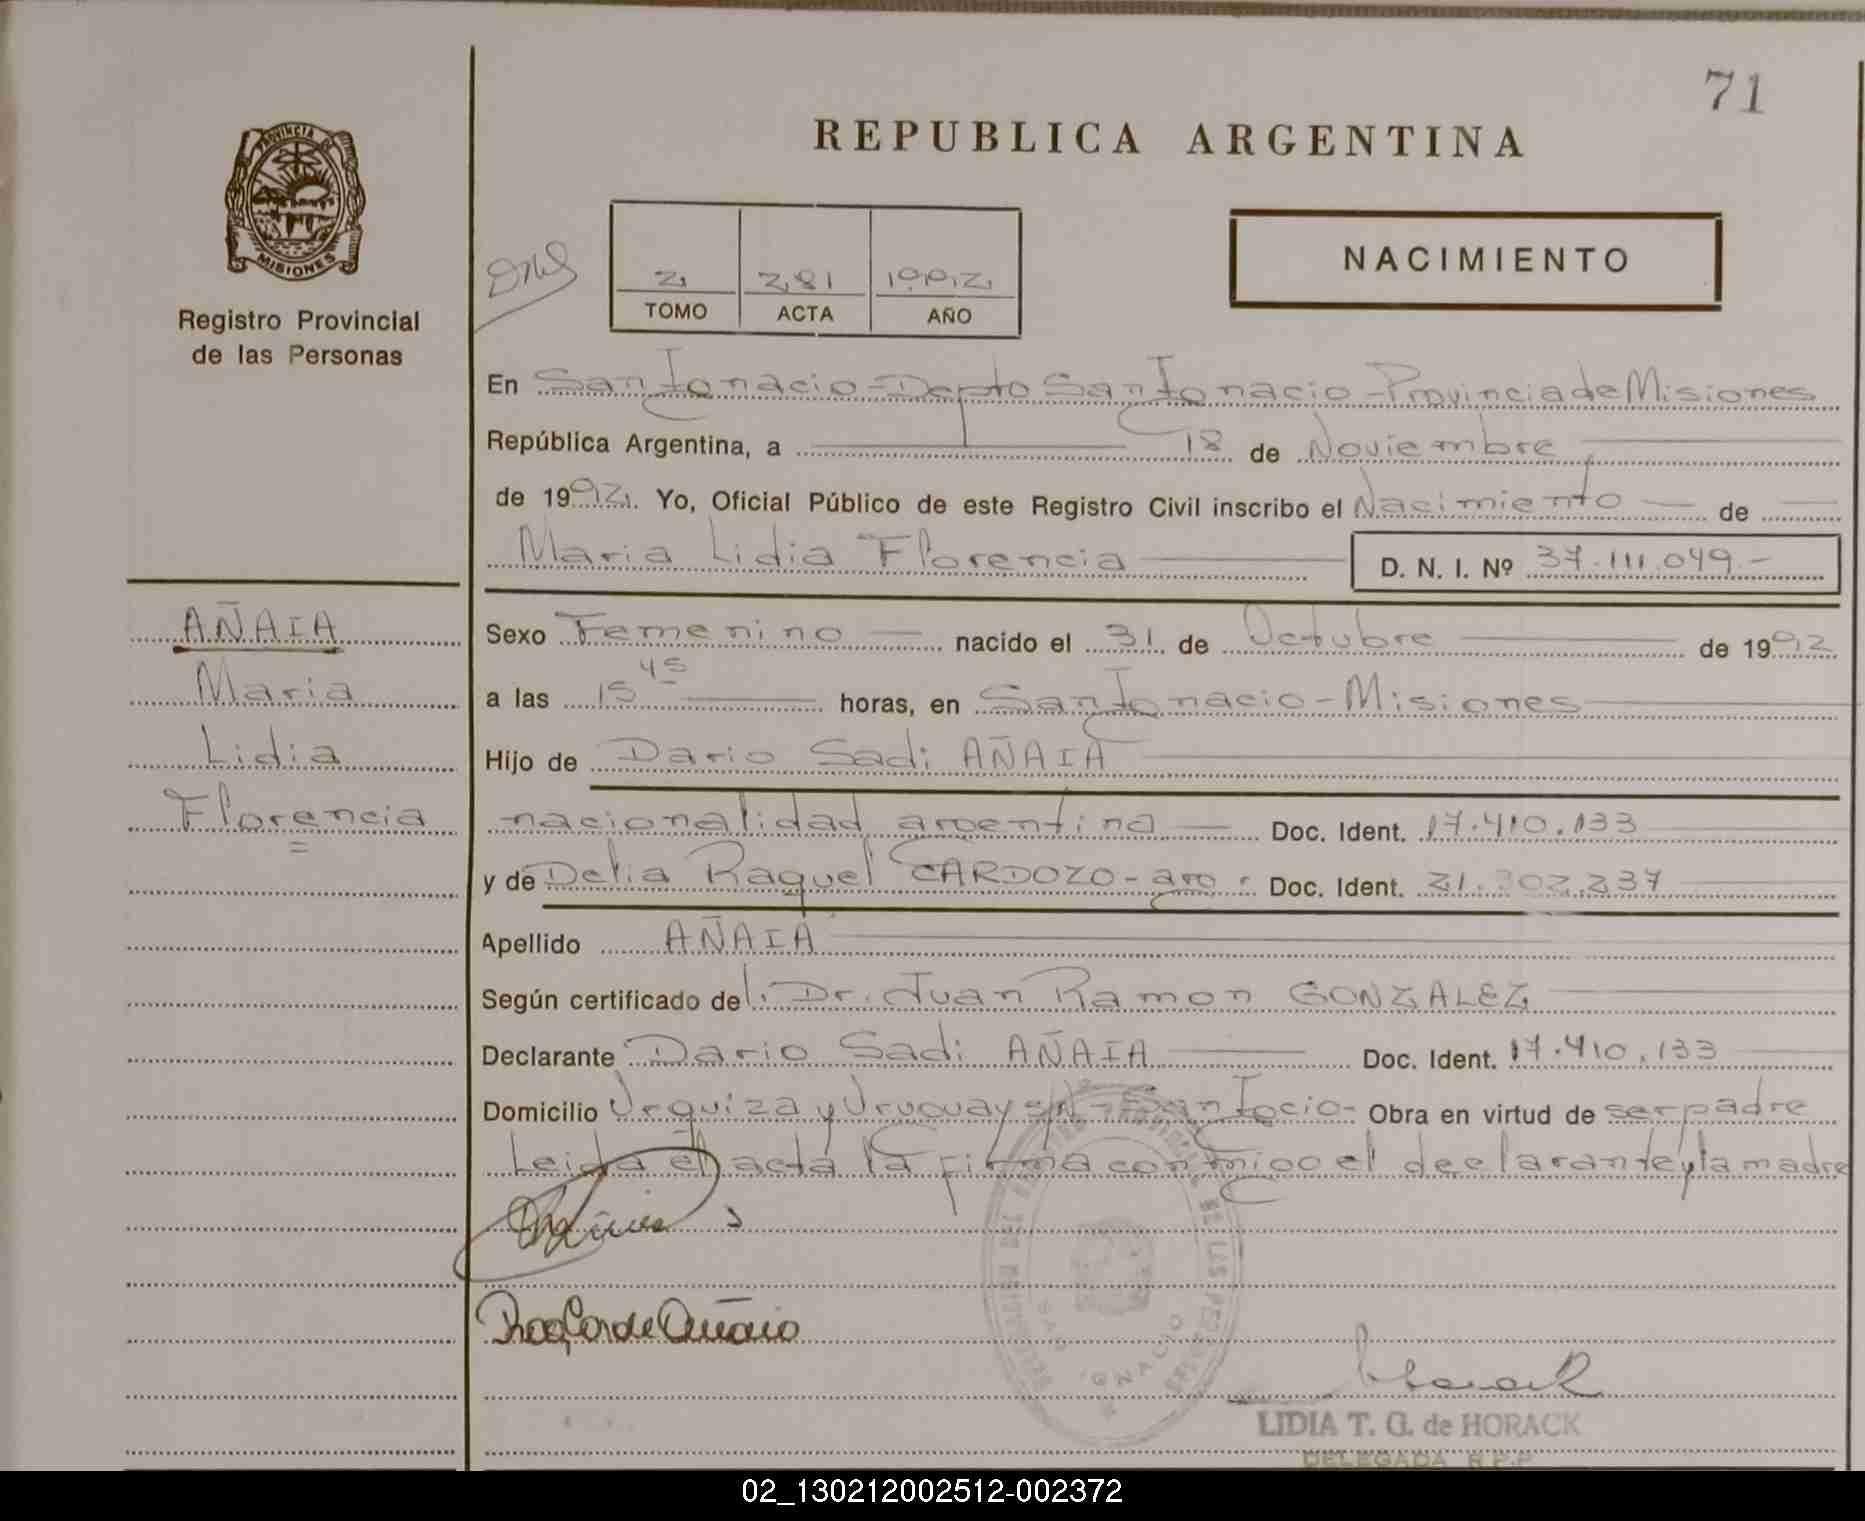 71
REPUBLICA ARGENTINA
PROVINCIA DE
MISIONES
Registro Provincial
de las Personas
2 281 1992
TOMO ACTA AÑO
NACIMIENTO
En San Ignacio - Depto San Ignacio - Provincia de Misiones
República Argentina, a 18 de Noviembre
de 1992. Yo, Oficial Público de este Registro Civil inscribo el Nacimiento de
Maria Lidia Florencia D. N. I. Nº 37.111.049.-
AÑAIA
Maria
Lidia
Florencia
Sexo Femenino nacido el 31 de Octubre de 1992
a las 15 45 horas, en San Ignacio - Misiones
Hijo de Dario Sadi AÑAIA
nacionalidad argentina Doc. Ident. 17.410.133
y de Delia Raquel CARDOZO - arg. Doc. Ident. 21.302.237
Apellido AÑAIA
Según certificado del Dr. Juan Ramon GONZALEZ
Declarante Dario Sadi AÑAIA Doc. Ident. 17.410.133
Domicilio Urquiza y Uruguay s/N - San Igcio - Obra en virtud de ser padre
Leida el acta la firma conmigo el declarante y la madre
SAN IGNACIO
LIDIA T. G. de HORACK
DELEGADA R.P.P
02_130212002512-002372